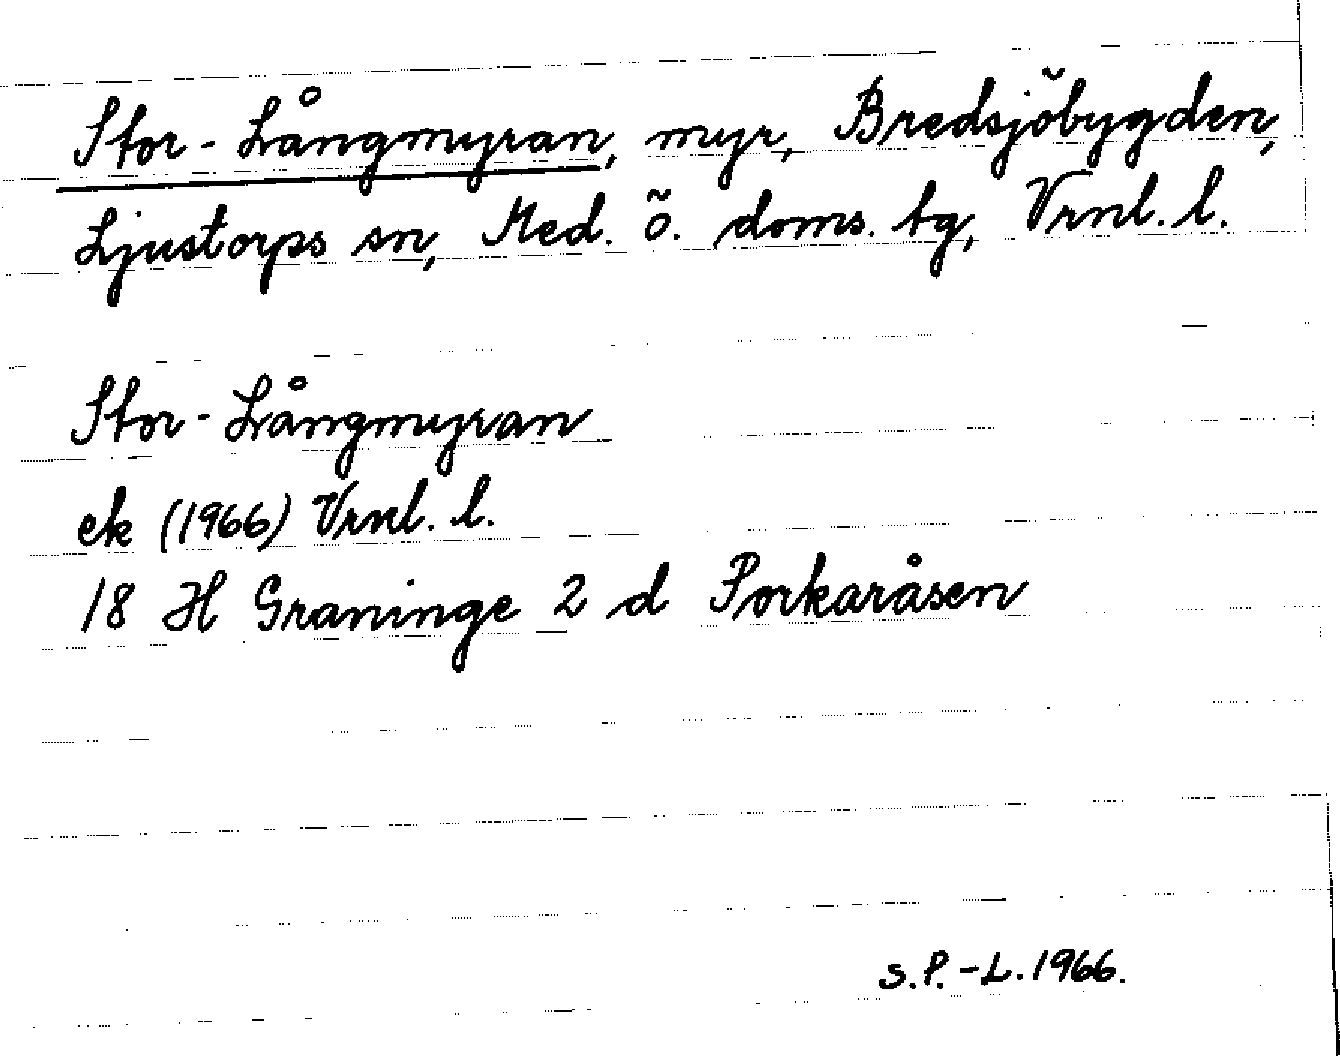 Stor-Långmyran, myr, Bredsjöbygden,
Ljustorps sn, Med. ö. doms. tg, Vrnl. l.
Stor-Långmyran
ek (1966) Vrnl. l.
18 H Graninge 2 d Porkaråsen
s.P.-L. 1966.